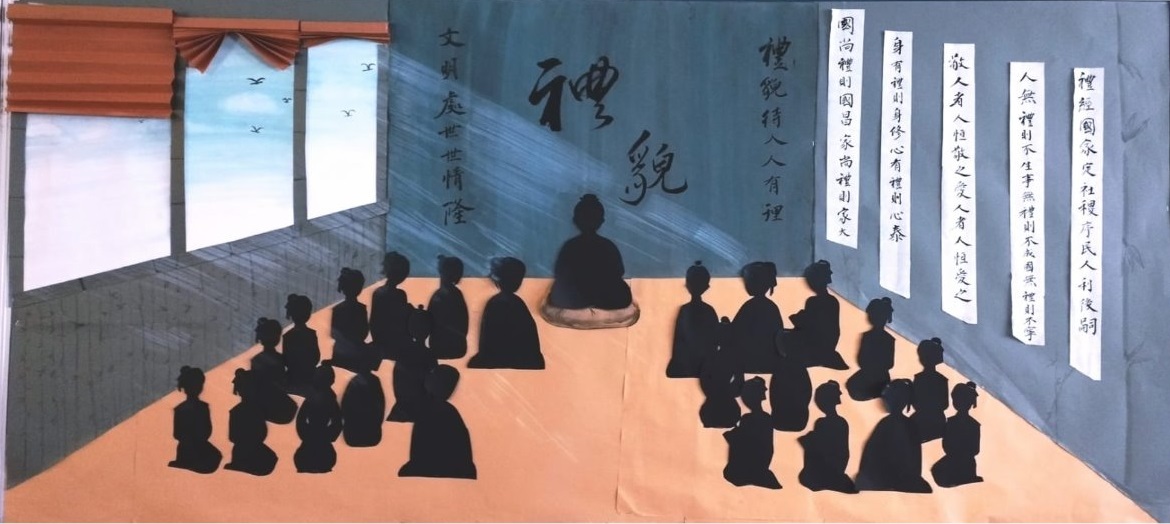 禮經國家定社稷序民人利後嗣
人無禮則不生事無禮則不成國無禮則不寧
敬人者人恒敬之愛人者人恒愛之
身有禮則身修心有禮則心泰
國尚禮則國昌家尚禮則家大
禮貌待人人有裡
禮貌
文明處世世情隆